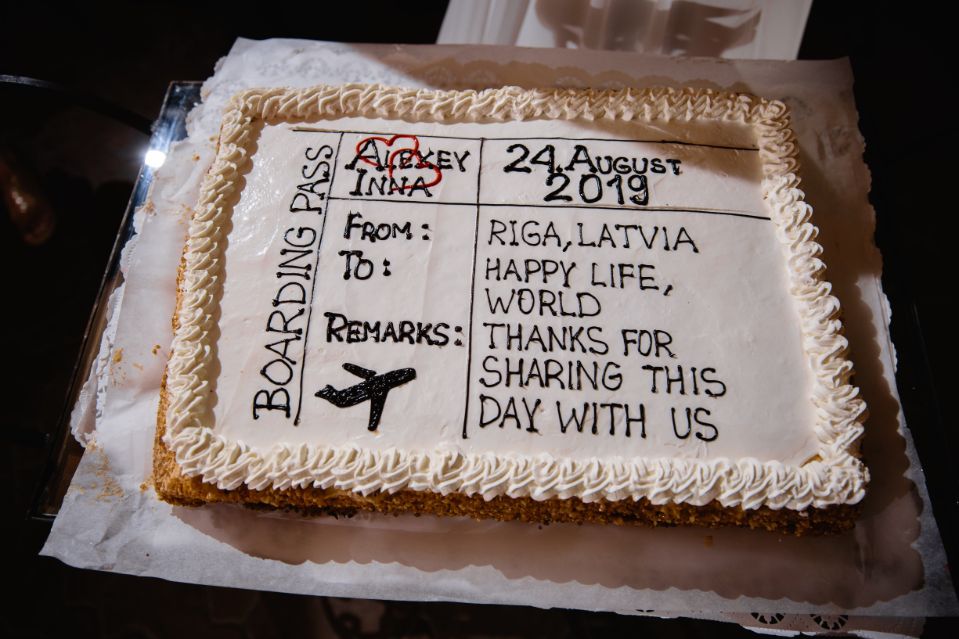 BOARDING PASS
ALEXEY
INNA
24. AUGUST
2019
FROM: RIGA, LATVIA
TO: HAPPY LIFE,
WORLD
REMARKS: THANKS FOR
SHARING THIS
DAY WITH US